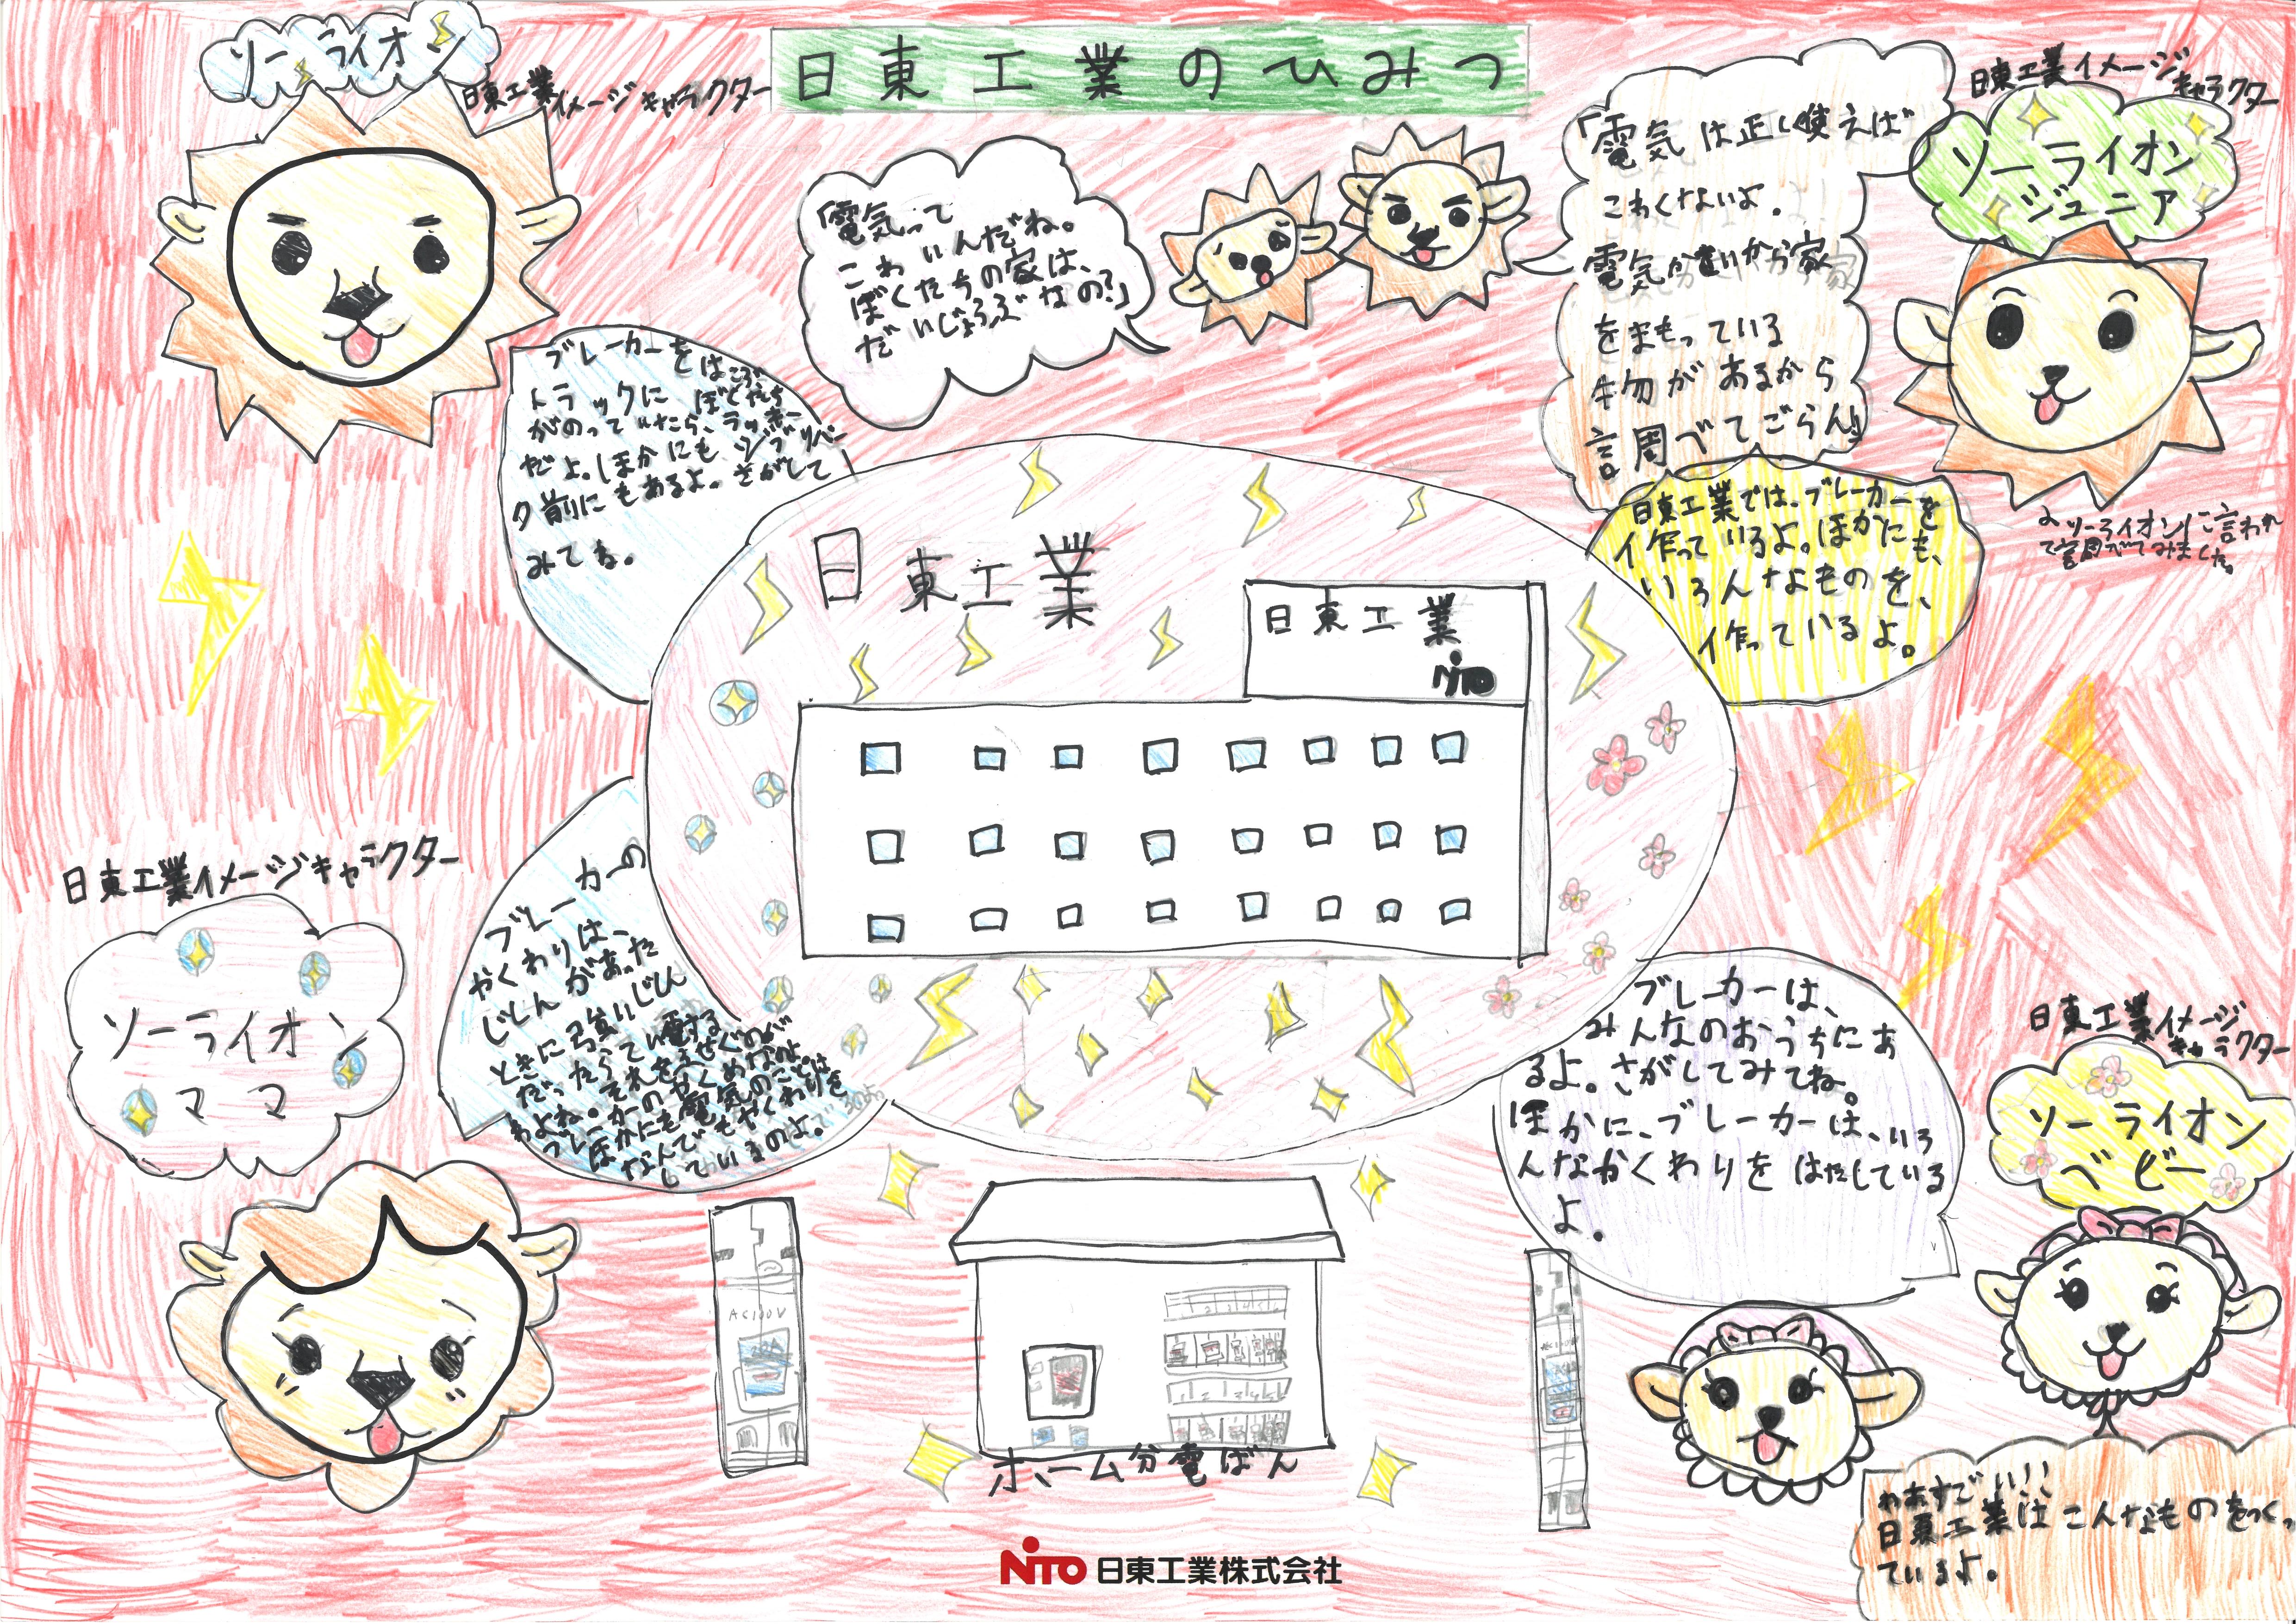 日東工業のひみつ
ソーライオン
日東工業イメージキャラクター
「電気って
こわいんだね。
ぼくたちの家は、
だいじょうぶなの?」
「電気は正しく使えば
こわくないよ。
電気から家
をまもっている
物があるから
調べてごらん」
日東工業イメージ
キャラクター
ソーライオン
ジュニア
ソーライオンに言われ
て調べてみました。
ブレーカーをはこぶ
トラックにぼくたち
がのっていたら、ラッキー
だよ。ほかにも、ジブリパー
ク前にもあるよ。さがして
みてね。
日東工業では、ブレーカーを
作っているよ。ほかにも、
いろんなものを、
作っているよ。
日東工業
日東工業
NITO
日東工業イメージキャラクター
ソーライオン
ママ
ブレーカーの
やくわりは、
じしんがあった
ときに強いじしん
だったらてい電する
わよね。それをふせぐのが
ブレーカーのやくめなのよ。
ほかにも電気のことは
なんでもやくわりを
しているのよ。
ブレーカーは、
みんなのおうちにあ
るよ。さがしてみてね。
ほかに、ブレーカーは、いろ
んなかくわりをはたしている
よ。
日東工業イメージ
キャラクター
ソーライオン
ベビー
AC100V
ホーム分電ばん
わあすごい!!
日東工業はこんなものをつくっ
ているよ。
NITO 日東工業株式会社